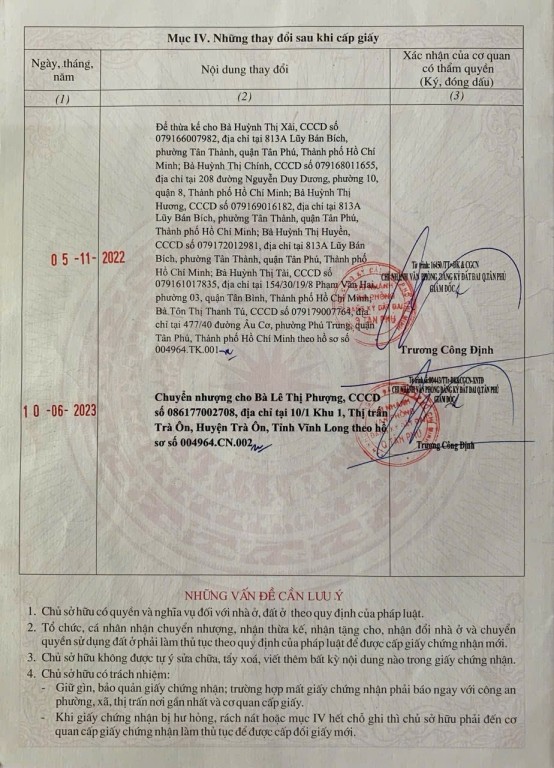 Mục IV. Những thay đổi sau khi cấp giấy
Ngày, tháng,
năm
Nội dung thay đổi
Xác nhận của cơ quan
có thẩm quyền
(Ký, đóng dấu)
(1)
(2)
(3)
05-11-2022
Để thừa kế cho Bà Huỳnh Thị Xải, CCCD số
079166007982, địa chỉ tại 813A Lũy Bán Bích,
phường Tân Thành, quận Tân Phú, Thành phố Hồ Chí
Minh; Bà Huỳnh Thị Chính, CCCD số 079168011655,
địa chỉ tại 208 đường Nguyễn Duy Dương, phường 10,
quận 8, Thành phố Hồ Chí Minh; Bà Huỳnh Thị
Hương, CCCD số 079169016182, địa chỉ tại 813A
Lũy Bán Bích, phường Tân Thành, quận Tân Phú,
Thành phố Hồ Chí Minh; Bà Huỳnh Thị Huyền,
CCCD số 079172012981, địa chỉ tại 813A Lũy Bán
Bích, phường Tân Thành, quận Tân Phú, Thành phố
Hồ Chí Minh; Bà Huỳnh Thị Tài, CCCD số
079161017835, địa chỉ tại 154/30/19/8 Phạm Văn Hai,
phường 03, quận Tân Bình, Thành phố Hồ Chí Minh;
Bà Tôn Thị Thanh Tú, CCCD số 079179007764, địa
chỉ tại 477/40 đường Âu Cơ, phường Phú Trung, quận
Tân Phú, Thành phố Hồ Chí Minh theo hồ sơ số
004964.TK.001
CHI NHÁNH VĂN PHÒNG ĐĂNG KÝ ĐẤT ĐAI Q.TÂN PHÚ
GIÁM ĐỐC
Trương Công Định
10-06-2023
Chuyển nhượng cho Bà Lê Thị Phượng, CCCD
số 086177002708, địa chỉ tại 10/1 Khu 1, Thị trấn
Trà Ôn, Huyện Trà Ôn, Tỉnh Vĩnh Long theo hồ
sơ số 004964.CN.002
CHI NHÁNH VĂN PHÒNG ĐĂNG KÝ ĐẤT ĐAI Q.TÂN PHÚ
GIÁM ĐỐC
Trương Công Định
NHỮNG VẤN ĐỀ CẦN LƯU Ý
1. Chủ sở hữu có quyền và nghĩa vụ đối với nhà ở, đất ở theo quy định của pháp luật.
2. Tổ chức, cá nhân nhận chuyển nhượng, nhận thừa kế, nhận tặng cho, nhận đổi nhà ở và chuyển
quyền sử dụng đất ở phải làm thủ tục theo quy định của pháp luật để được cấp giấy chứng nhận mới.
3. Chủ sở hữu không được tự ý sửa chữa, tẩy xoá, viết thêm bất kỳ nội dung nào trong giấy chứng nhận.
4. Chủ sở hữu có trách nhiệm:
- Giữ gìn, bảo quản giấy chứng nhận; trường hợp mất giấy chứng nhận phải báo ngay với công an
phường, xã, thị trấn nơi gần nhất và cơ quan cấp giấy.
- Khi giấy chứng nhận bị hư hỏng, rách nát hoặc mục IV hết chỗ ghi thì chủ sở hữu phải đến cơ
quan cấp giấy chứng nhận làm thủ tục để được cấp đổi giấy mới.